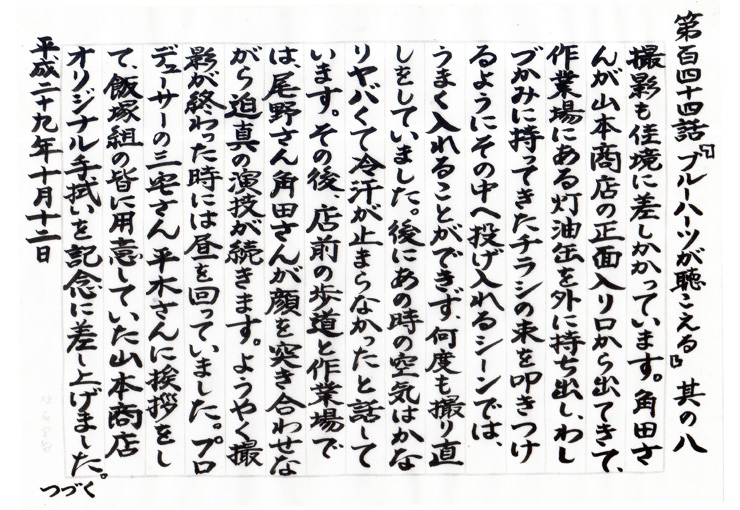 第百四十四話『ブルーハーツが聴こえる』其の八
撮影も佳境に差しかかっています。角田さ
んが山本商店の正面入り口から出てきて、
作業場にある灯油缶を外に持ち出し、わし
づかみに持ってきたチラシの束を叩きつけ
るようにその中へ投げ入れるシーンでは、
うまく入れることができず、何度も撮り直
しをしていました。後にあの時の空気はかな
りヤバくて冷汗が止まらなかったと話して
います。その後、店前の歩道と作業場で
は、尾野さん角田さんが顔を突き合わせな
がら迫真の演技が続きます。ようやく撮
影が終わった時には昼を回っていました。プロ
デューサーの三宅さん平木さんに挨拶をし
て、飯塚組の皆に用意していた山本商店
オリジナル手拭いを記念に差し上げました。
つづく
平成二十九年十月十二日